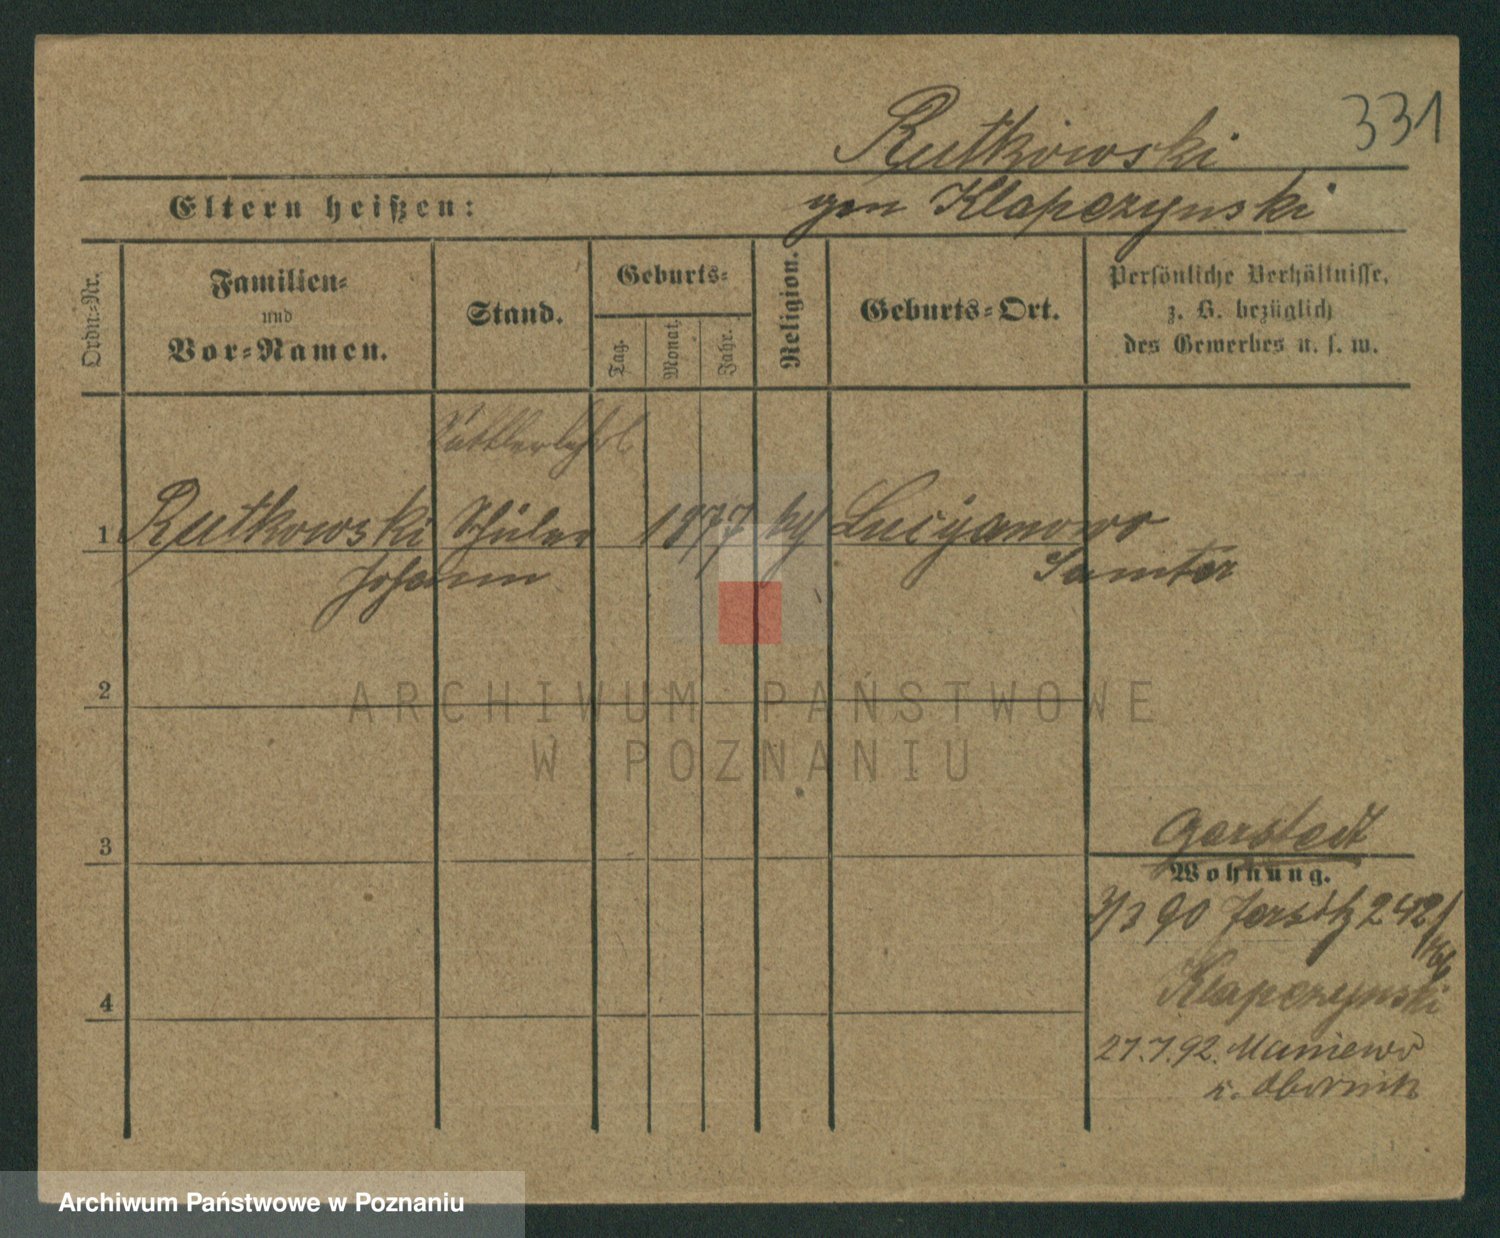 331
Rutkowski
Eltern heißen:
gen Klapczynski
Ordn.-Nr.
Familien-
und
Vor-Namen.
Stand.
Geburts-
Tag.
Monat.
Jahr.
Religion.
Geburts-Ort.
Persönliche Verhältnisse,
z. B. bezüglich
des Gewerbes u. s. w.
Sattlerlehrl
1 Rutkowski Schüler 1877 Lucijanowo
Johann Samter
2
ARCHIWUM PAŃSTWOWE
W POZNANIU
3
Wohnung.
3/3 90 Jersitz 242/
Klapczynski
4
27.7.92. Maniewo
k. Obornik
Archiwum Państwowe w Poznaniu